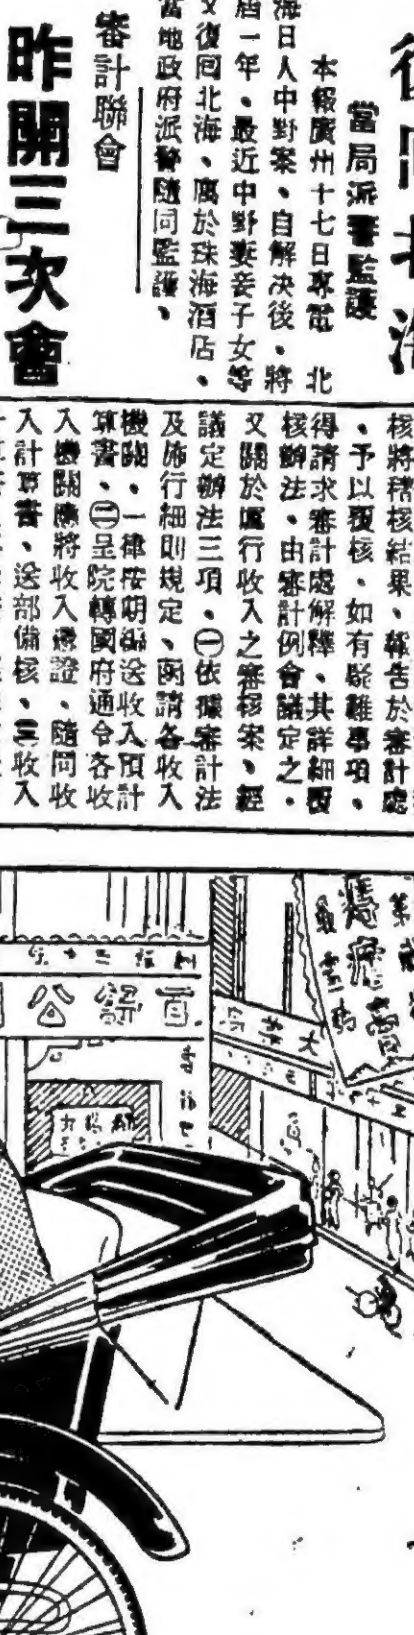 北海
當局派警監護
本報廣州十七日專電 北
海日人中野案、自解決後、將
屆一年、最近中野妻妾子女等
又復囘北海、寓於珠海酒店、
當地政府派警隨同監護、
審計聯會
昨開三次會
核將稽核結果、報告於審計處
、予以覆核、如有疑難事項、
得請求審計處解釋、其詳細覆
核辦法、由審計例會議定之、
又關於厲行收入之審核案、經
議定辦法三項、㊀依據審計法
及施行細則規定、函請各收入
機關、一律按期編送收入預計
算書、㊁呈院轉國府通令各收
入機關應將收入憑證、隨同收
入計算書、送部備核、㊂收入
公
大